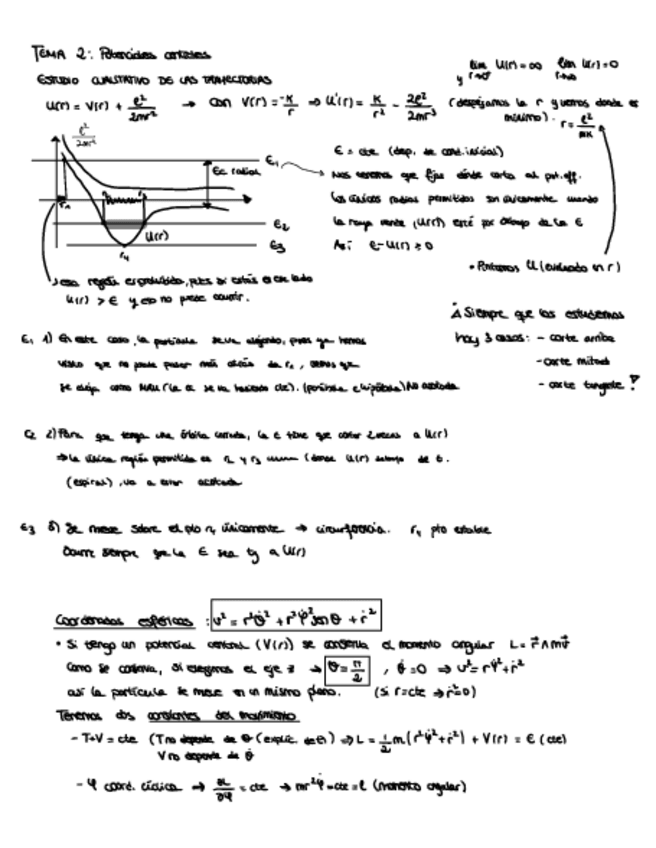 TEMA 2: Potenciales centrales
ESTUDIO CUALITATIVO DE LAS TRAYECTORIAS
y lim r→0 U(r) = ∞ lim r→∞ U(r) = 0
U(r) = V(r) + ℓ²/2mr² → con V(r) = -K/r ⇒ U'(r) = K/r² - 2ℓ²/2mr³ (despejamos la r y vemos donde es mínimo). r = ℓ²/mK
ℓ²/2mr²
Ec radial
E₁
E₂
E₃
U(r)
r₄
E = cte (dep. de cond. iniciales)
Nos tenemos que fijar dónde corta al pot. eff.
Los únicos radios permitidos son únicamente cuando
la raya verde (U(r)) esté por debajo de la E
Así E - U(r) ≥ 0
• Pintamos U (evaluado en r)
esa región es prohibido, pues si estás a ese lado
U(r) > E y eso no puede ocurrir.
Siempre que los estudiemos
hay 3 casos: - corte arriba
- corte mitad
- corte tangente !
E₁ 1) En este caso, la partícula se va alejando, pues ya hemos
visto que no puede pasar más atrás de r₁, vemos que
se aleja como MRU (la Ec se va haciendo cte). (parábola e hipérbola) No acotada
E₂ 2) Para que tenga una órbita cerrada, la E tiene que cortar 2 veces a U(r)
⇒ la única región permitida es r₂ y r₃ (donde U(r) debajo de E.
(espiral), va a estar acotada
E₃ 3) Se mueve sobre el pto r₄ únicamente → circunferencia. r₄ pto estable
Ocurre siempre que la E sea tg a U(r)
Coordenadas esféricas: v² = r²θ̇² + r²φ̇² sen θ + ṙ²
• Si tengo un potencial central (V(r)) se conserva el momento angular L = r⃗ ∧ mv⃗
Como se conserva, si elegimos el eje z → θ = π/2, θ̇ = 0 ⇒ v² = r²φ̇² + ṙ²
así la partícula se mueve en un mismo plano. (Si r = cte ⇒ ṙ² = 0)
Tenemos dos constantes del movimiento
- T+V = cte (T no depende de θ (explíc. de t) ⇒ L = 1/2 m(r²φ̇² + ṙ²) + V(r) = E (cte)
V no depende de θ̇
- φ coord. cíclica → ∂L/∂φ̇ = cte → mr²φ̇ = cte = ℓ (momento angular)